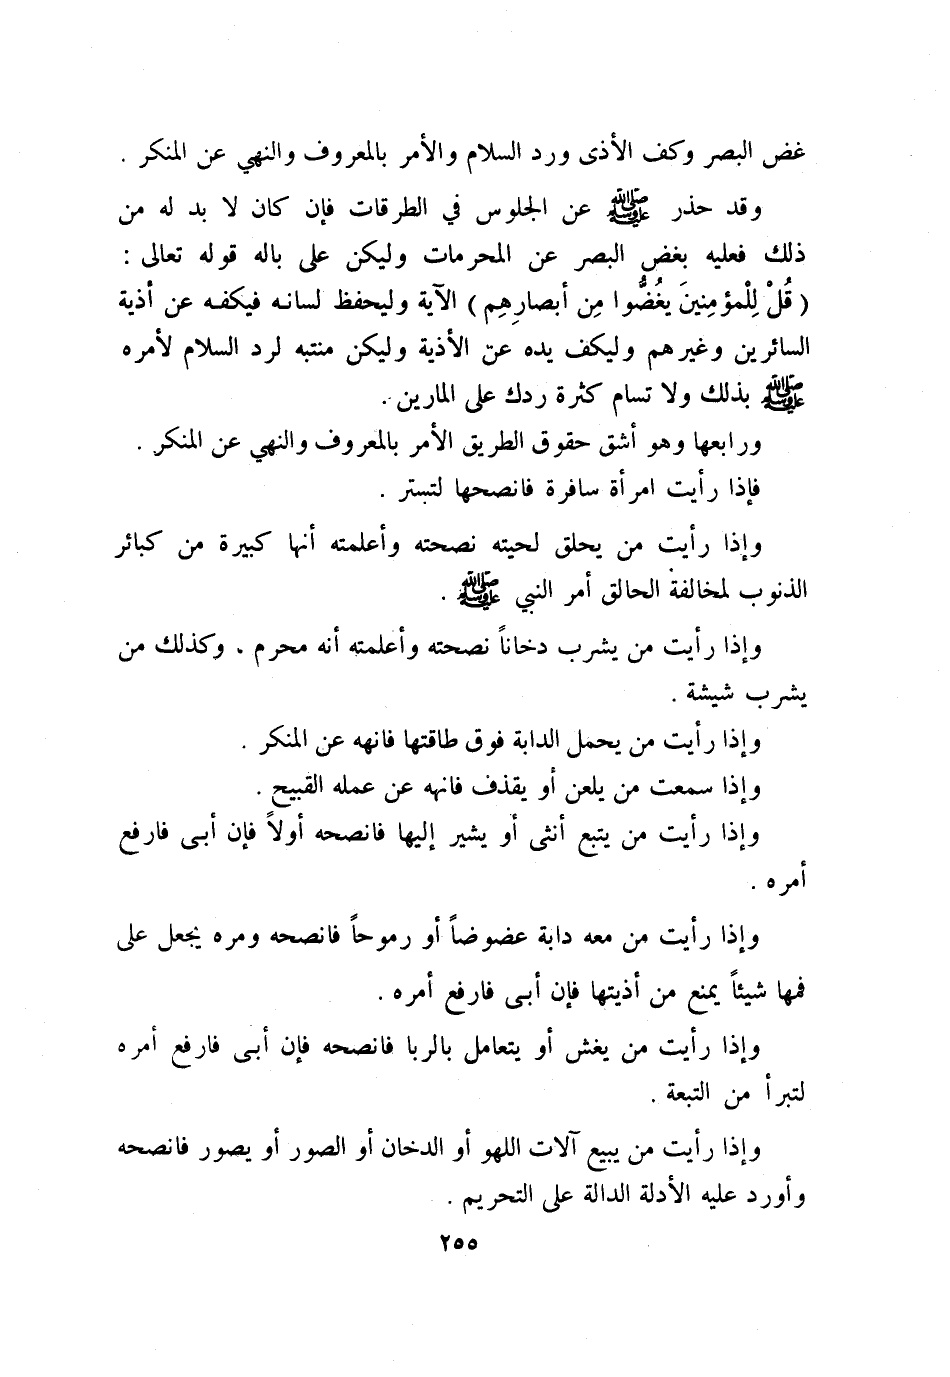 غض البصر وكف الأذى ورد السلام والأمر بالمعروف والنهي عن المنكر .
وقد حذر ﷺ عن الجلوس في الطرقات فإن كان لا بد له من
ذلك فعليه بغض البصر عن المحرمات وليكن على باله قوله تعالى :
( قُلْ لِلْمؤمِنينَ يغُضُّوا مِن أبصارِهِم ) الآية وليحفظ لسانه فيكفه عن أذية
السائرين وغيرهم وليكف يده عن الأذية وليكن منتبه لرد السلام لأمره
ﷺ بذلك ولا تسام كثرة ردك على المارين .
ورابعها وهو أشق حقوق الطريق الأمر بالمعروف والنهي عن المنكر .
فإذا رأيت امرأة سافرة فانصحها لتستر .
وإذا رأيت من يحلق لحيته نصحته وأعلمته أنها كبيرة من كبائر
الذنوب لمخالفة الحالق أمر النبي ﷺ .
وإذا رأيت من يشرب دخاناً نصحته وأعلمته أنه محرم . وكذلك من
يشرب شيشة .
وإذا رأيت من يحمل الدابة فوق طاقتها فانهه عن المنكر .
وإذا سمعت من يلعن أو يقذف فانهه عن عمله القبيح .
وإذا رأيت من يتبع أنثى أو يشير إليها فانصحه أولاً فإن أبى فارفع
أمره .
وإذا رأيت من معه دابة عضوضاً أو رموحاً فانصحه ومره يجعل على
فمها شيئاً يمنع من أذيتها فإن أبى فارفع أمره .
وإذا رأيت من يغش أو يتعامل بالربا فانصحه فإن أبى فارفع أمره
لتبرأ من التبعة .
وإذا رأيت من يبيع آلات اللهو أو الدخان أو الصور أو يصور فانصحه
وأورد عليه الأدلة الدالة على التحريم .
٢٥٥